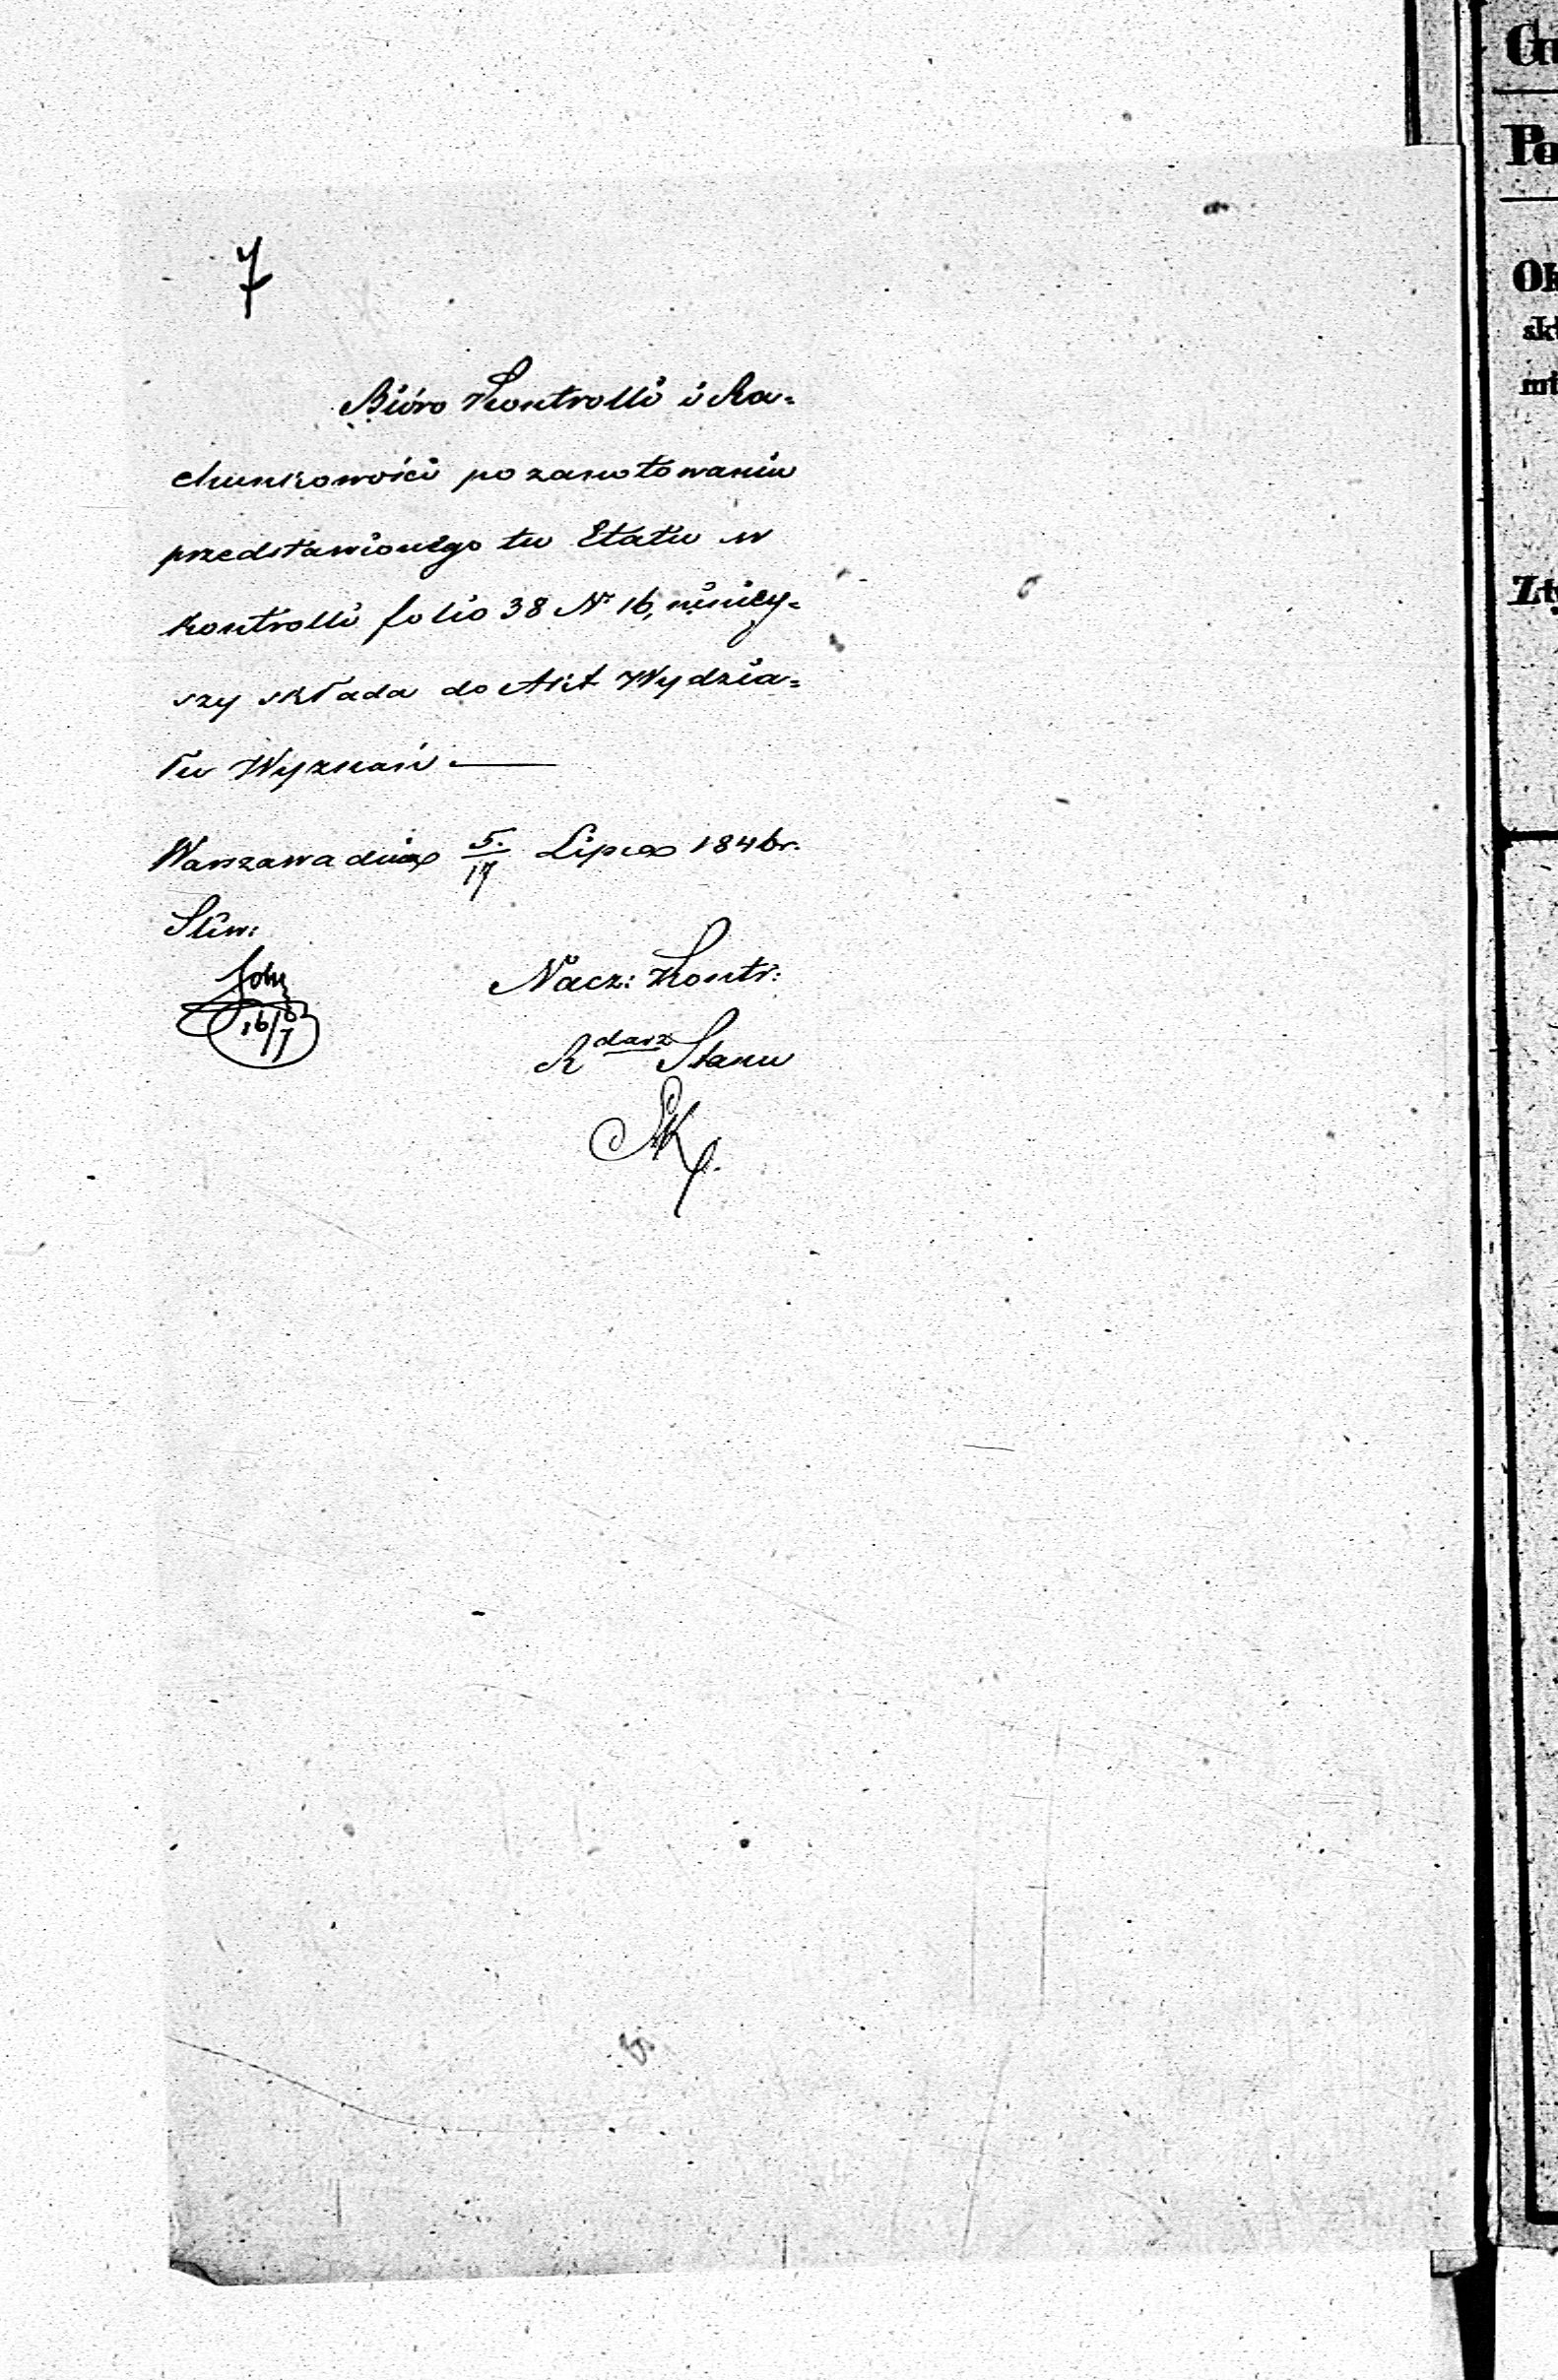 7
Bióro Kontrolli i Ra-
chunkowości po zanotowaniu
przedstawionego tu Etatu w
kontrolli folio 38 Nr 16, niniey-
szy składa do Akt Wydzia-
łu Wyznań.
Warszawa dnia 5/17 Lipca 1846 r.
Nacz: Kontr:
Rdarz Stanu
Ch
Po
Ok
skł
mi
Zty